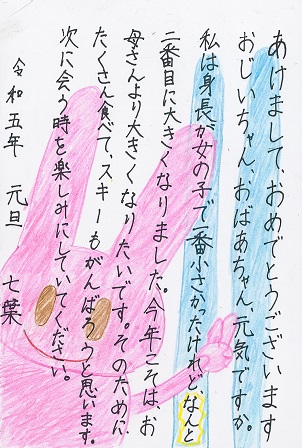 あけまして、おめでとうございます
おじいちゃん、おばあちゃん、元気ですか。
私は身長が女の子で一番小さかったけれど、なんと
二番目に大きくなりました。今年こそは、お
母さんより大きくなりたいです。そのために
たくさん食べて、スキーもがんばろうと思います。
次に会う時を楽しみにしていてください。
令和五年 元旦 七葉